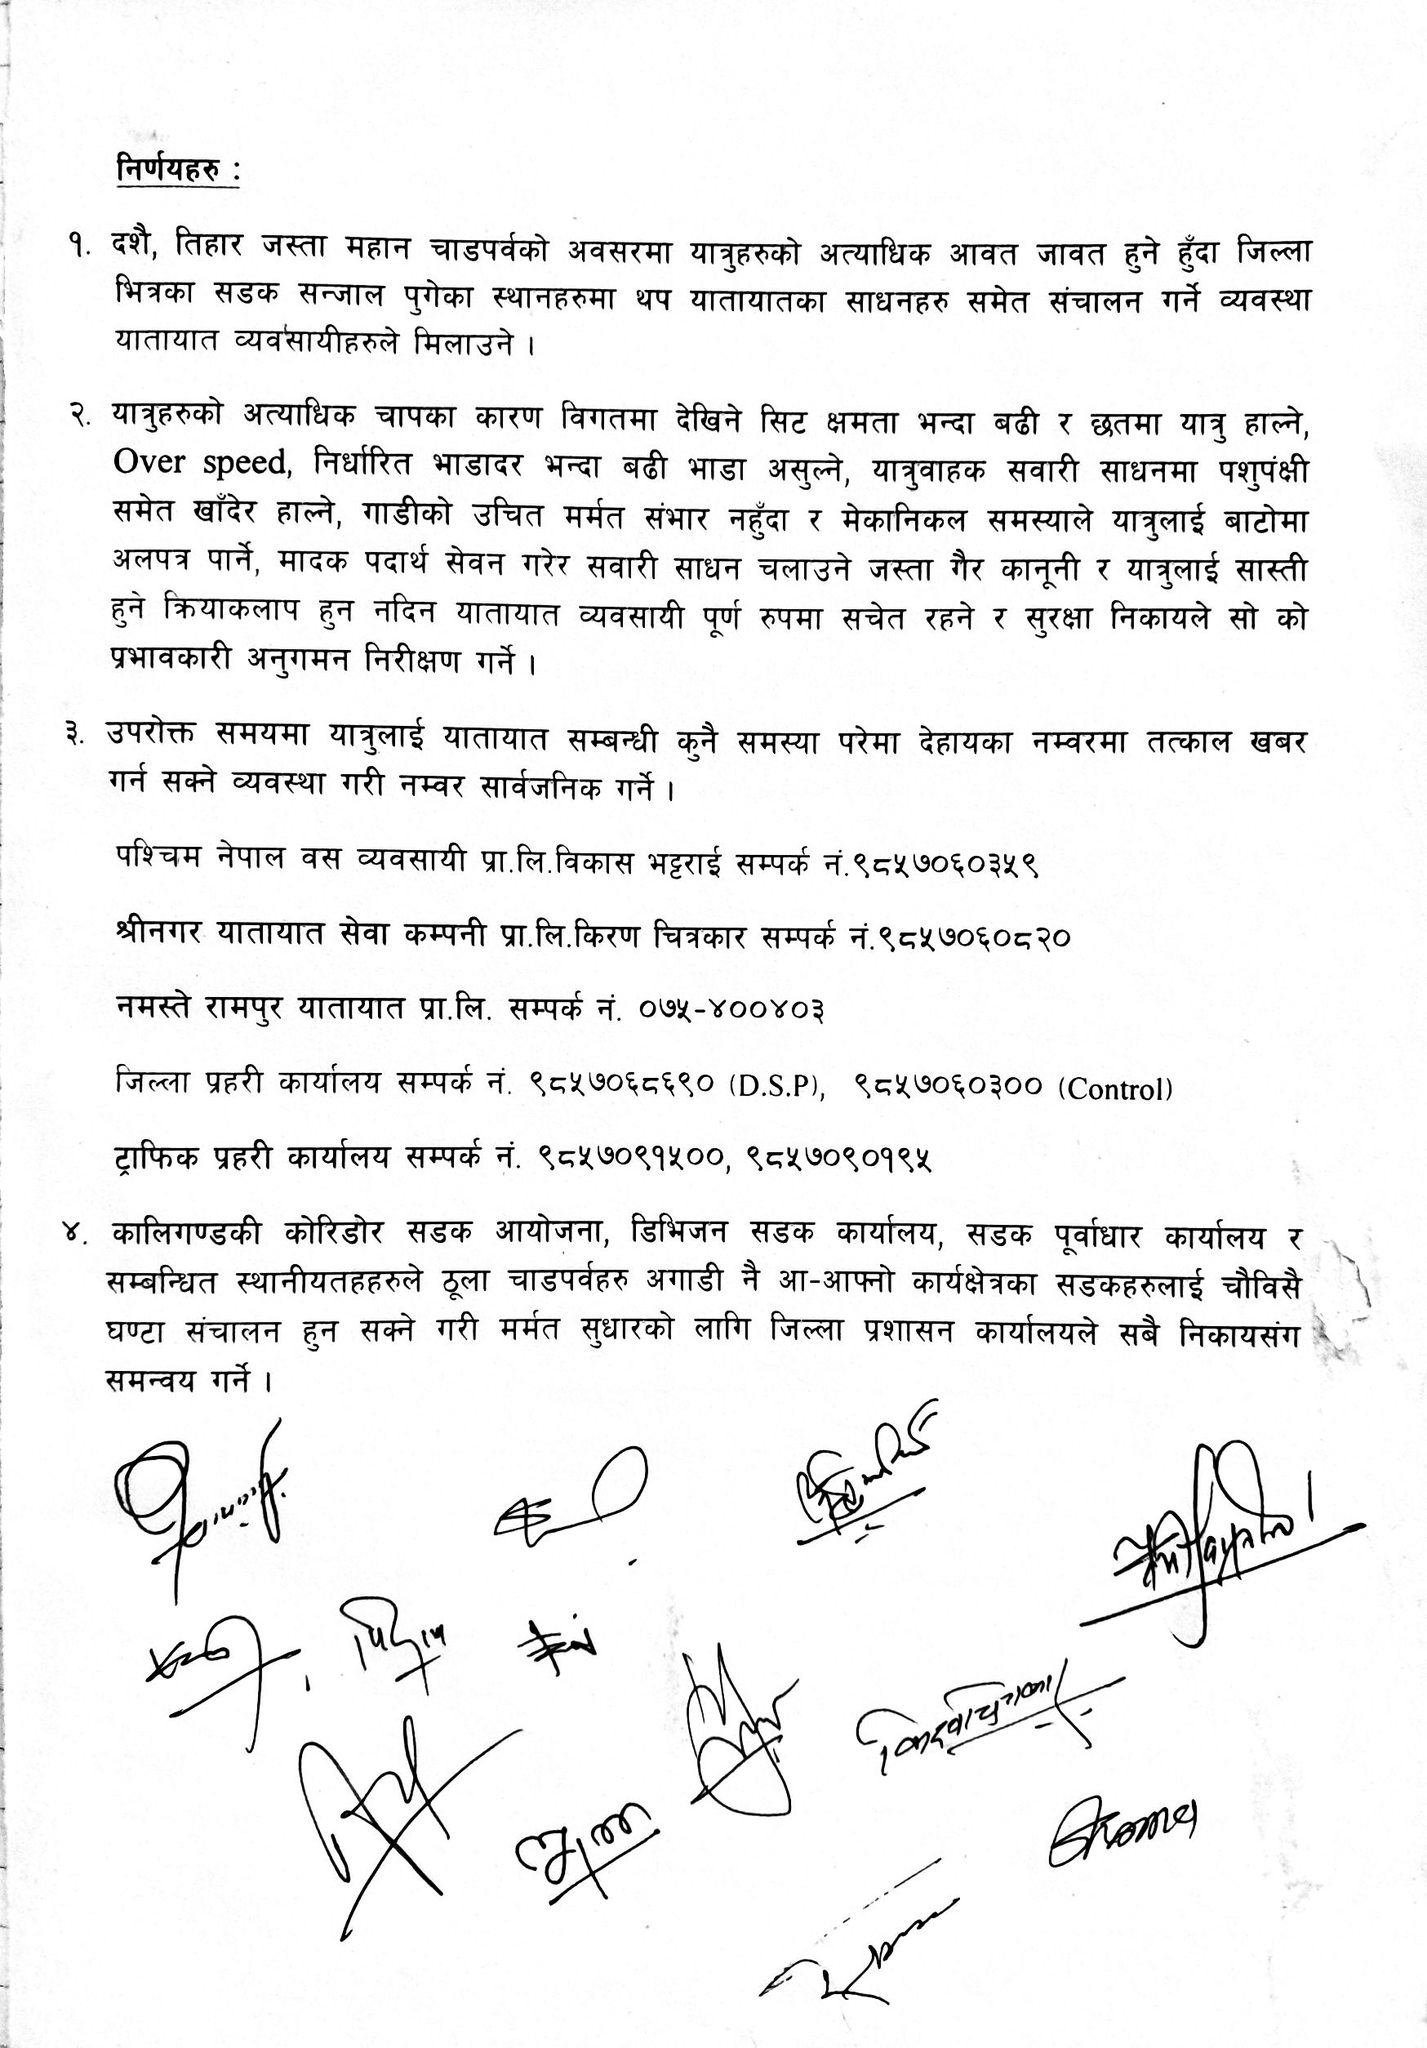 निर्णयहरु :
१. दशै, तिहार जस्ता महान चाडपर्वको अवसरमा यात्रुहरुको अत्याधिक आवत जावत हुने हुँदा जिल्ला
भित्रका सडक सन्जाल पुगेका स्थानहरुमा थप यातायातका साधनहरु समेत संचालन गर्ने व्यवस्था
यातायात व्यवसायीहरुले मिलाउने ।
२. यात्रुहरुको अत्याधिक चापका कारण विगतमा देखिने सिट क्षमता भन्दा बढी र छतमा यात्रु हाल्ने,
Over speed, निर्धारित भाडादर भन्दा बढी भाडा असुल्ने, यात्रुवाहक सवारी साधनमा पशुपंक्षी
समेत खाँदेर हाल्ने, गाडीको उचित मर्मत संभार नहुँदा र मेकानिकल समस्याले यात्रुलाई बाटोमा
अलपत्र पार्ने, मादक पदार्थ सेवन गरेर सवारी साधन चलाउने जस्ता गैर कानूनी र यात्रुलाई सास्ती
हुने क्रियाकलाप हुन नदिन यातायात व्यवसायी पूर्ण रुपमा सचेत रहने र सुरक्षा निकायले सो को
प्रभावकारी अनुगमन निरीक्षण गर्ने ।
३. उपरोक्त समयमा यात्रुलाई यातायात सम्बन्धी कुनै समस्या परेमा देहायका नम्वरमा तत्काल खबर
गर्न सक्ने व्यवस्था गरी नम्वर सार्वजनिक गर्ने ।
पश्चिम नेपाल वस व्यवसायी प्रा.लि.विकास भट्टराई सम्पर्क नं.९८५७०६०३५९
श्रीनगर यातायात सेवा कम्पनी प्रा.लि.किरण चित्रकार सम्पर्क नं.९८५७०६०८२०
नमस्ते रामपुर यातायात प्रा.लि. सम्पर्क नं. ०७५-४००४०३
जिल्ला प्रहरी कार्यालय सम्पर्क नं. ९८५७०६८६९० (D.S.P), ९८५७०६०३०० (Control)
ट्राफिक प्रहरी कार्यालय सम्पर्क नं. ९८५७०९१५००, ९८५७०९०१९५
४. कालिगण्डकी कोरिडोर सडक आयोजना, डिभिजन सडक कार्यालय, सडक पूर्वाधार कार्यालय र
सम्बन्धित स्थानीयतहहरुले ठूला चाडपर्वहरु अगाडी नै आ-आफ्नो कार्यक्षेत्रका सडकहरुलाई चौविसै
घण्टा संचालन हुन सक्ने गरी मर्मत सुधारको लागि जिल्ला प्रशासन कार्यालयले सबै निकायसंग
समन्वय गर्ने ।